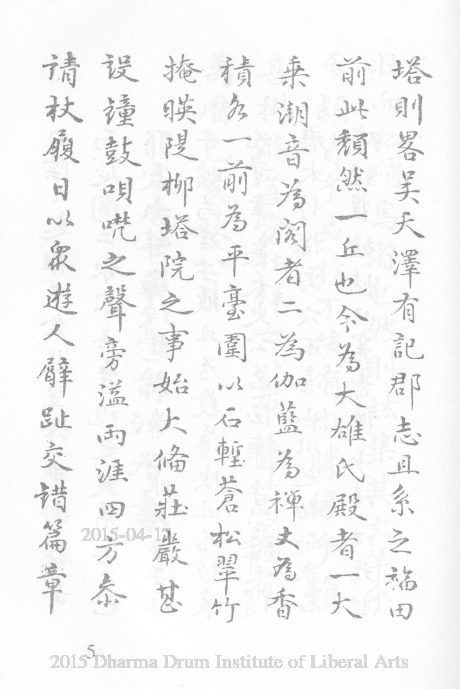 塔則畧吴天澤有記郡志且系之福田
前此頽然一丘也今為大雄氏殿者一大
乗潮音為閣者二為伽藍為禪丈為香
積各一前為平臺圍以石輊蒼松翠竹
掩暎隄柳塔院之事始大俻莊嚴甚
設鐘鼓唄唄之聲旁溢兩涯四方叅
請杖履日以衆遊人臂趾交錯篇章
2015-04-17
5
2015 Dharma Drum Institute of Liberal Arts